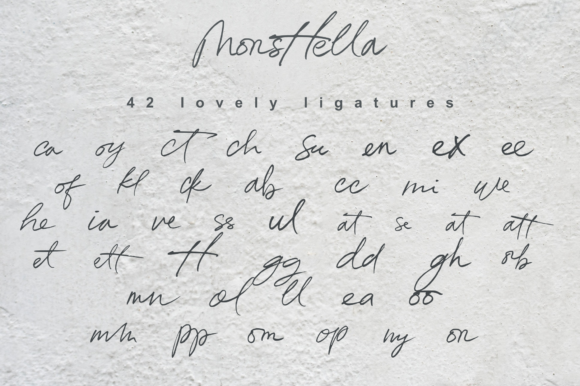 Monsttella
42 lovely ligatures
ca oy ct ch su en ex ee
of kl ck ab cc mi we
he ia ve ss ul at se at att
et ett tt gg dd gh rb
mn ol ll ea oo
mm pp om op ny on